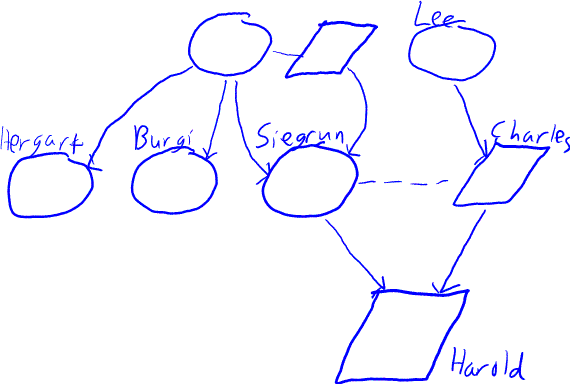 Lee
Hergart
Burgi
Siegrun
Charles
Harold